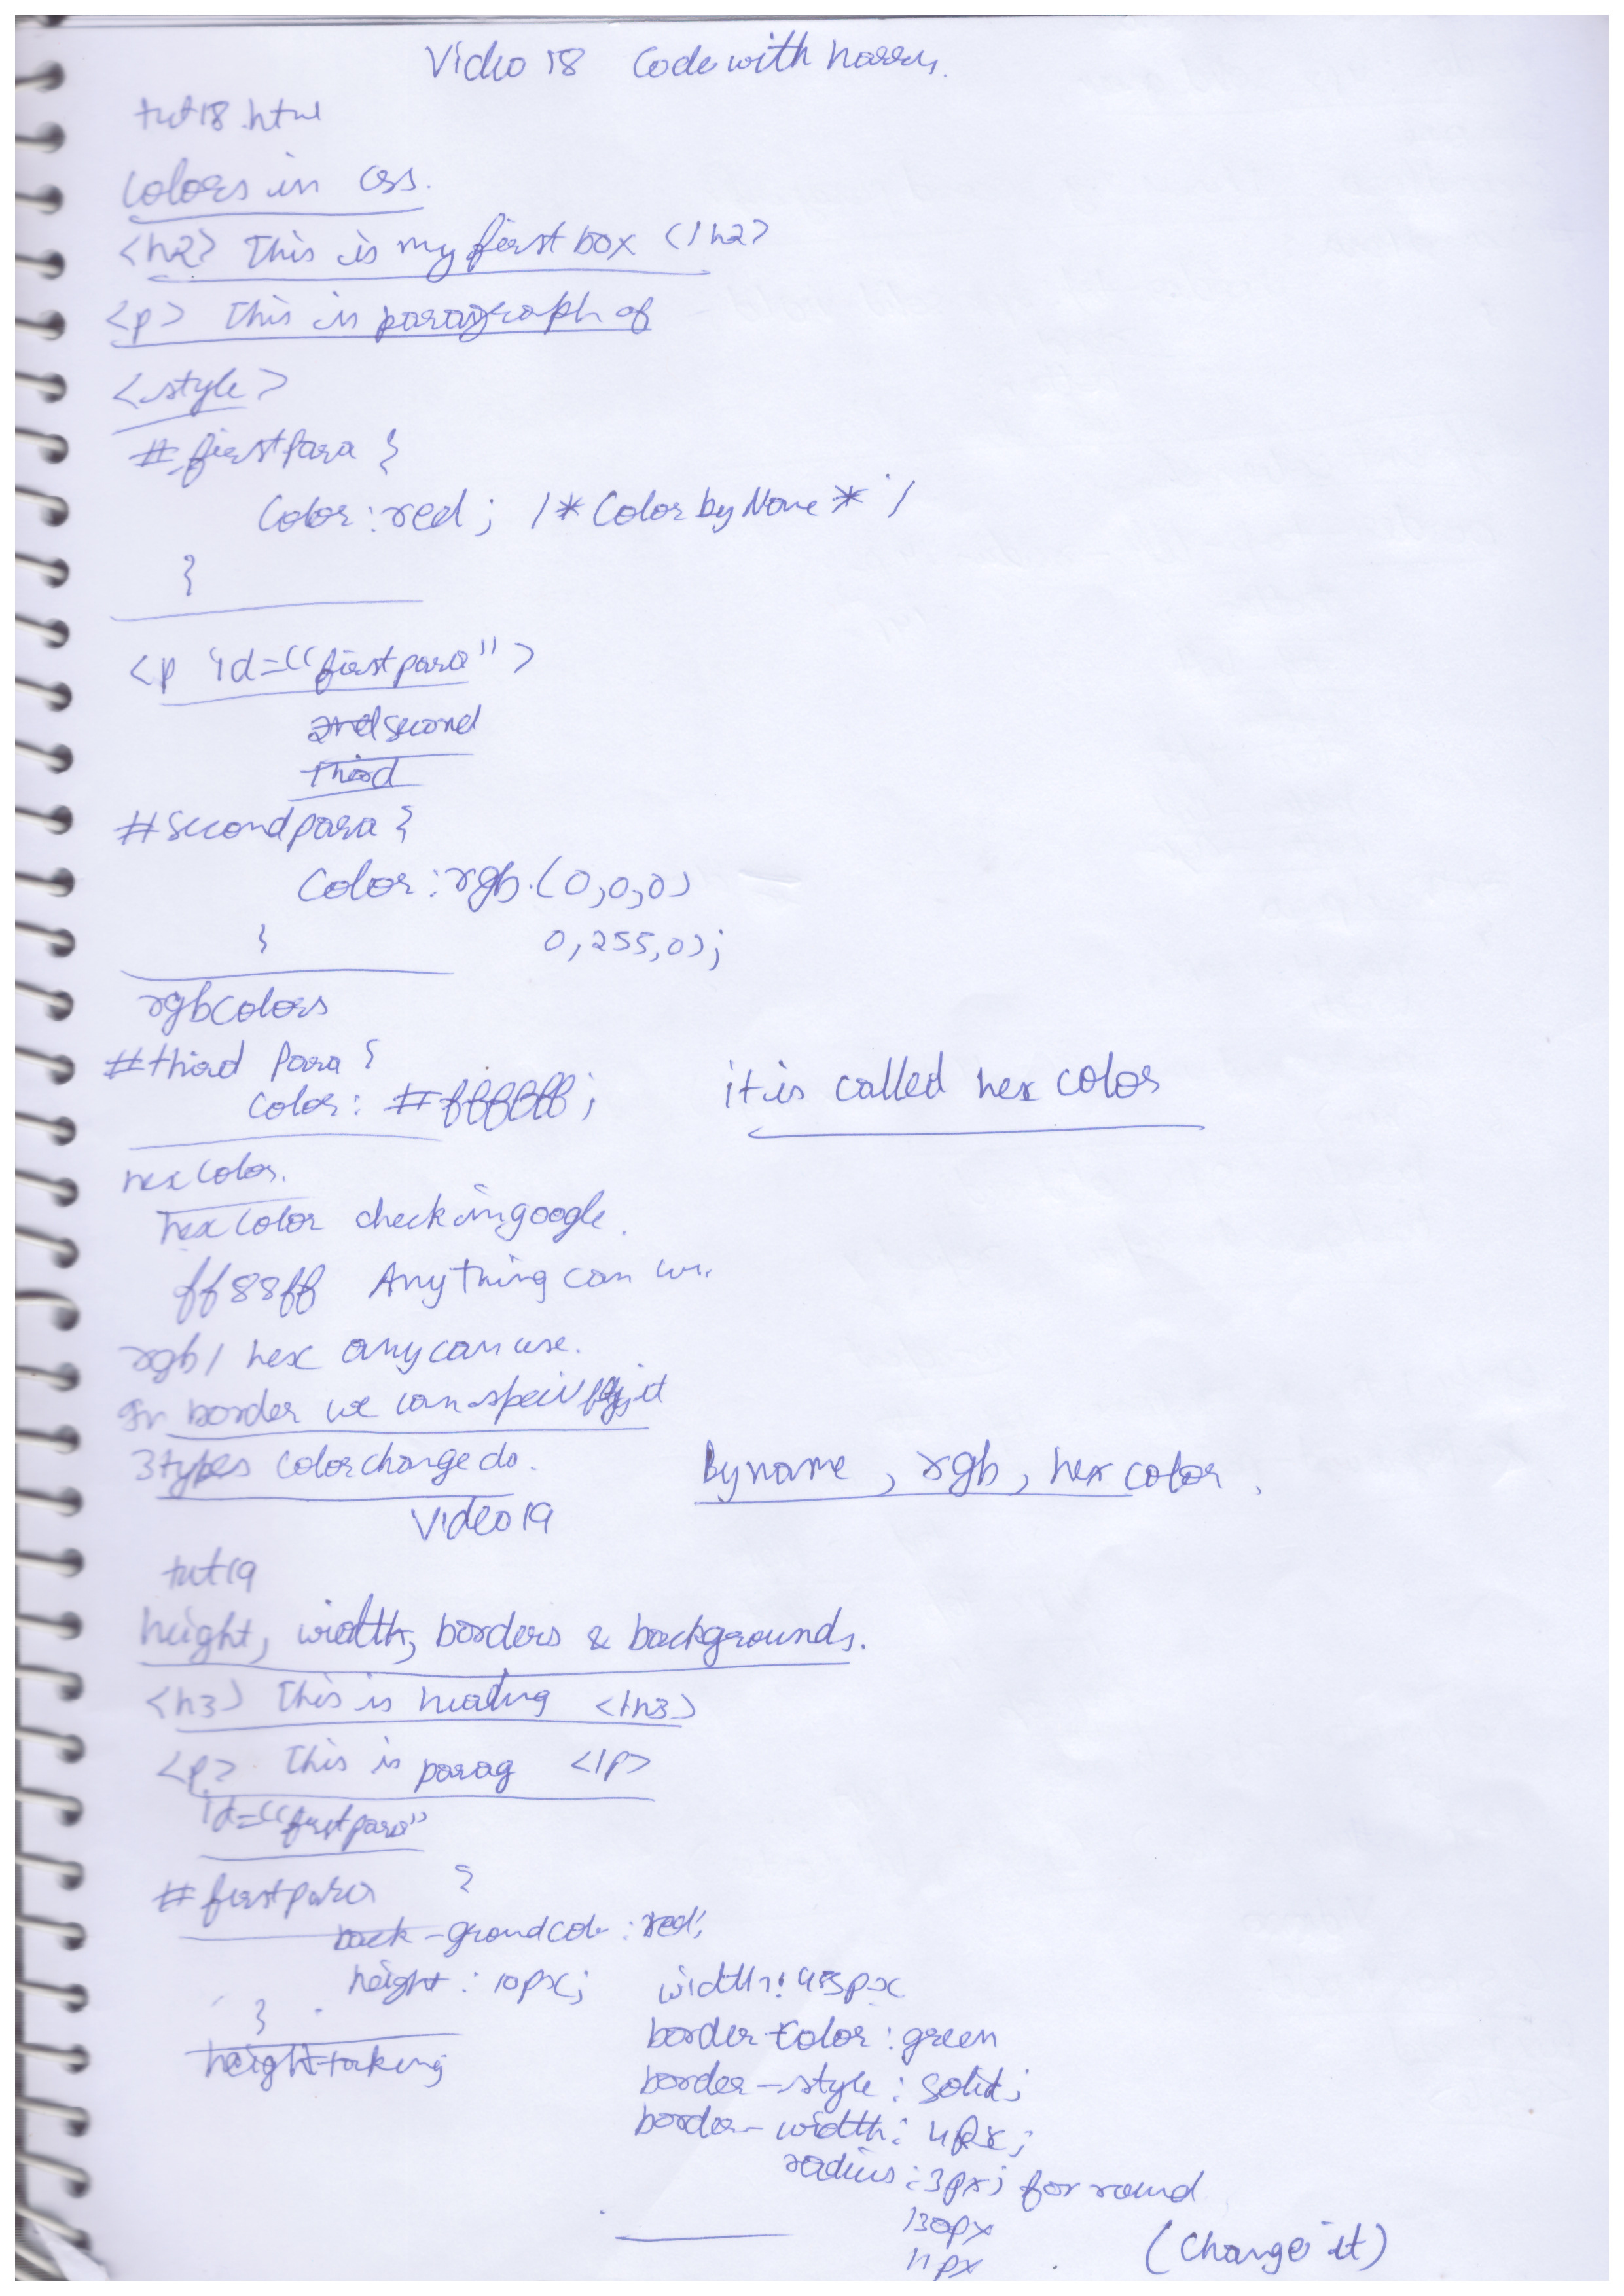 Video 18 Code with harry.
tut18.html
Colors in css.
<h2> This is my first box </h2>
<p> This is paragraph of
<style>
#firstPara {
Color: red; /* Color by Name */
}
<p id="firstpara">
2nd second
third
#secondpara {
Color: rgb(0,0,0)
} 0,255,0);
rgb colors
#third Para {
color: #ffffff; it is called hex color
hex Color.
hex Color check in google.
ff88ff Anything can
rgb / hex any can use.
In border we can specify it
3 types color change do. by name, rgb, hex color.
Video 19
tut19
height, width, borders & backgrounds.
<h3> This is heading </h3>
<p> This is parag </p>
id="firstpara"
#firstpara {
back-ground : red;
height: 10px; width: 455px
} border-color: green
height taking border-style: solid;
border-width: 4px;
radius: 3px; for round
130px
11px (Change it)